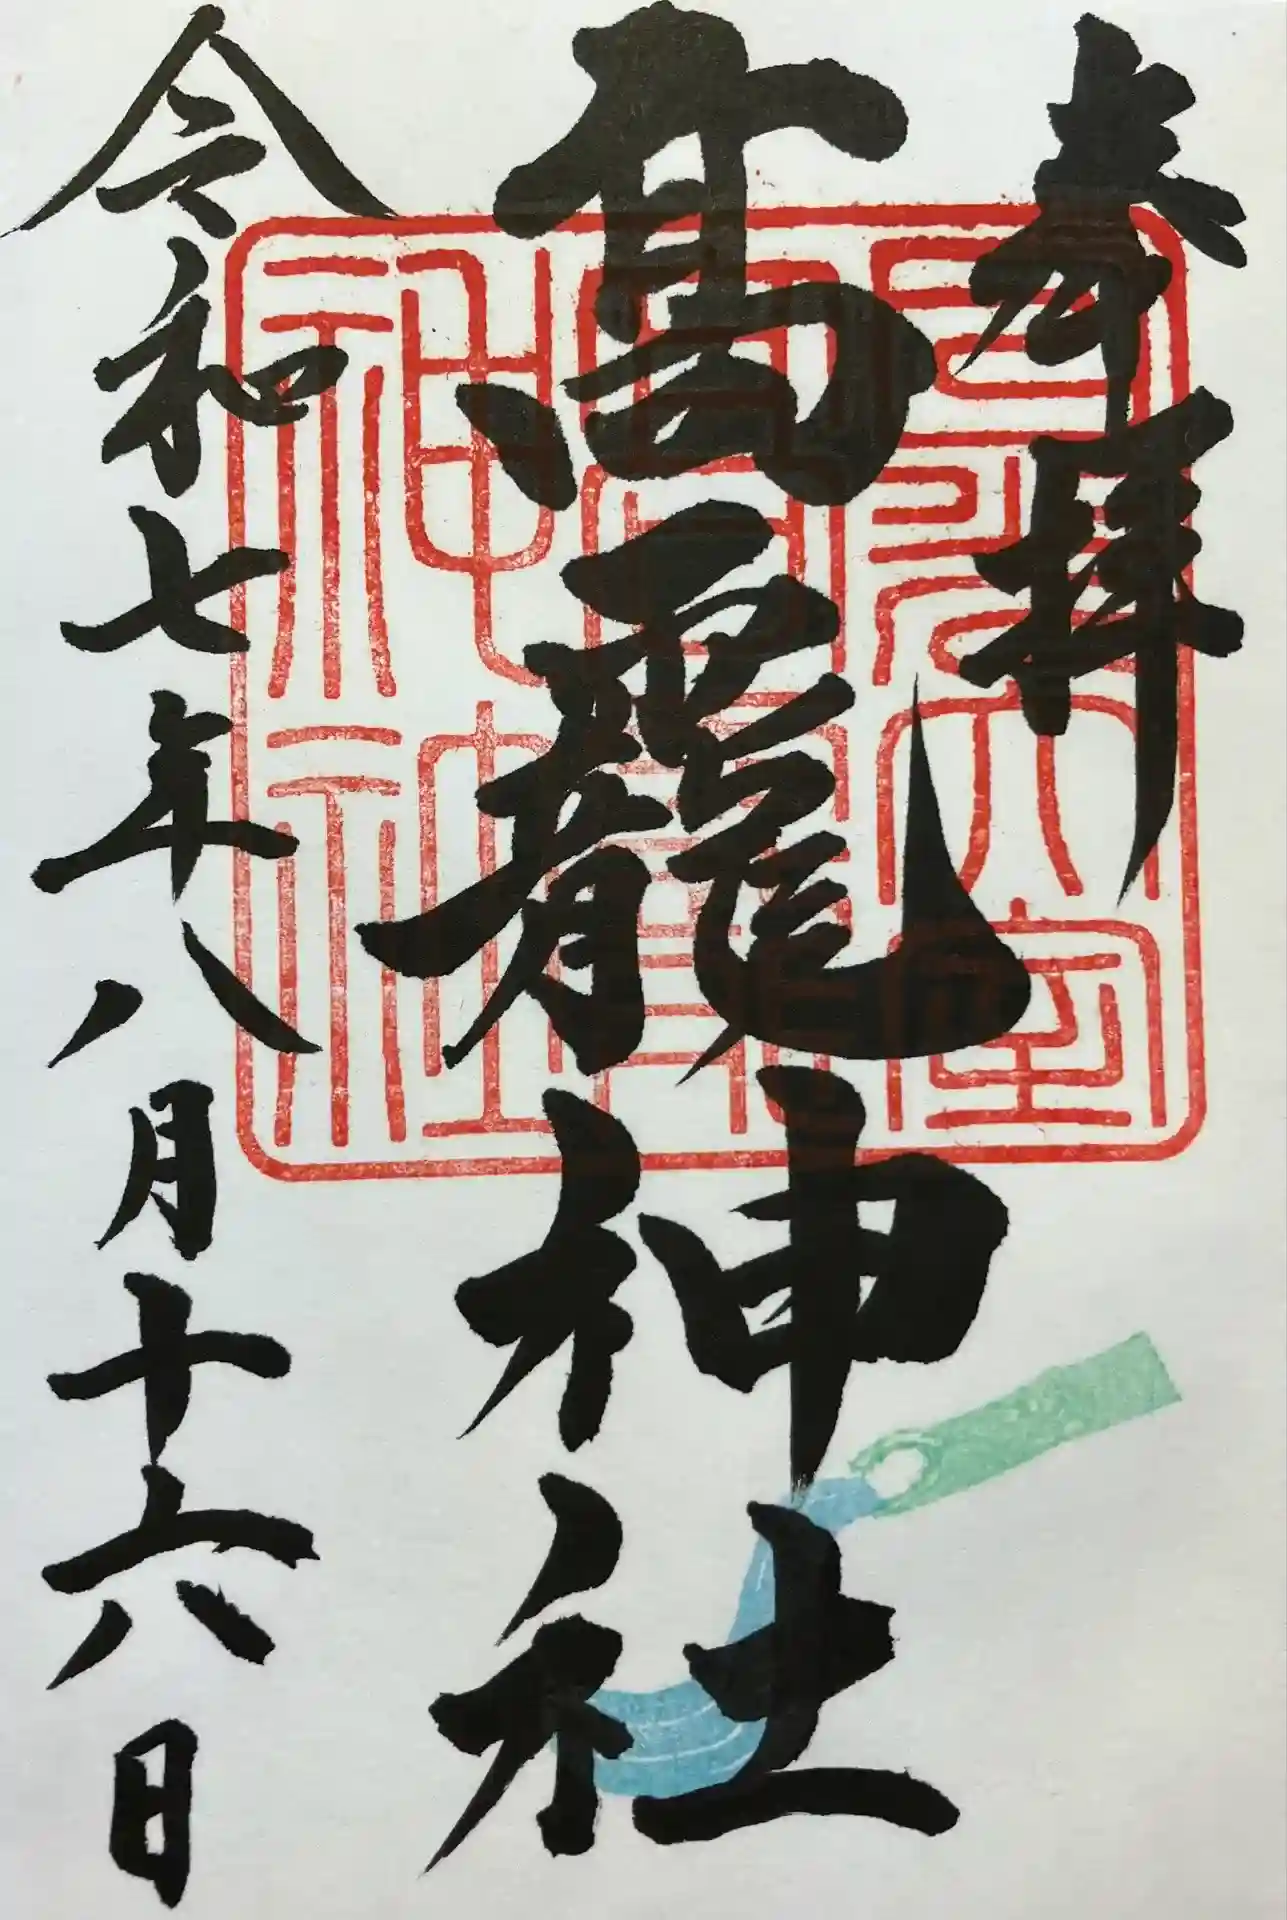 奉拝
高龗神社
令和七年八月十六日
日光大室
高龗
神社